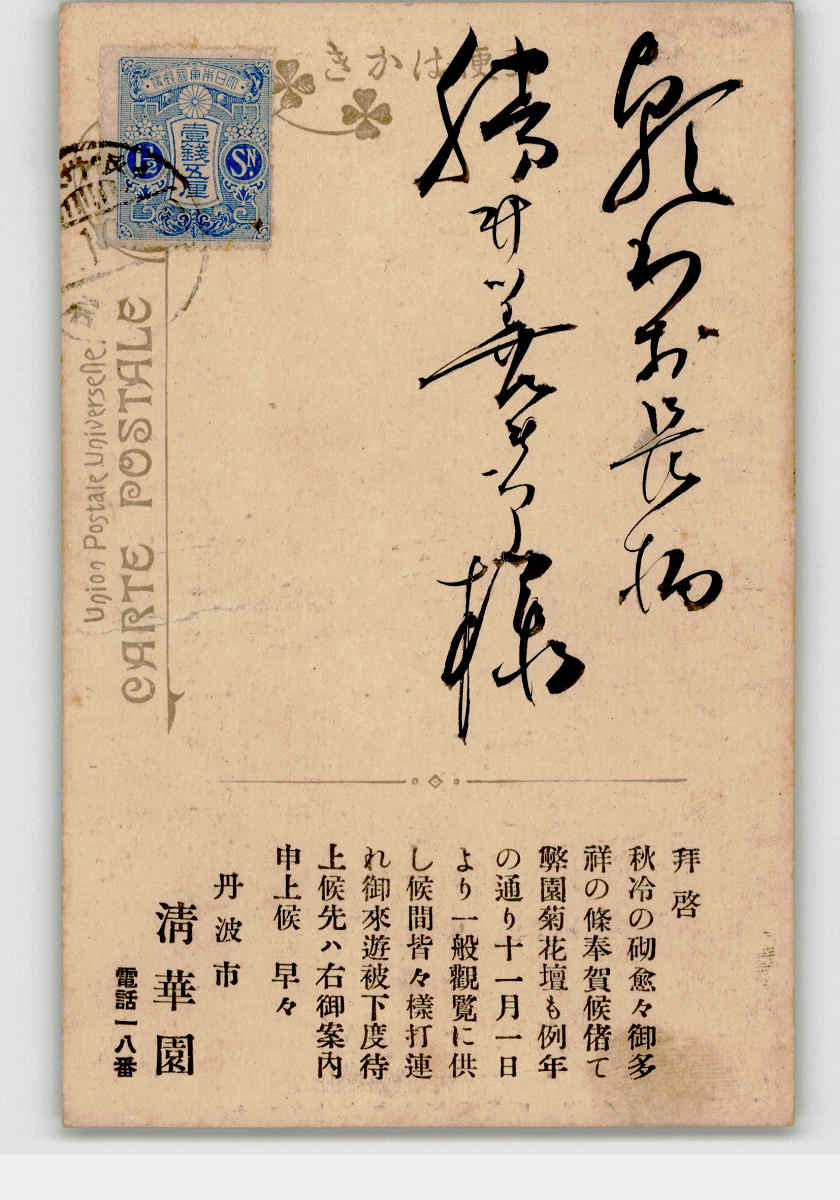 きかは便
大日本帝國郵便
壹錢五厘
1½
SN.
Union Postale Universelle.
CARTE POSTALE
長柄
勝井善
様
拜啓
秋冷の砌愈々御多
祥の條奉賀候偖て
弊園菊花壇も例年
の通り十一月一日
より一般觀覽に供
し候間皆々樣打連
れ御來遊被下度待
上候先ハ右御案內
申上候 早々
丹波市
淸華園
電話一八番